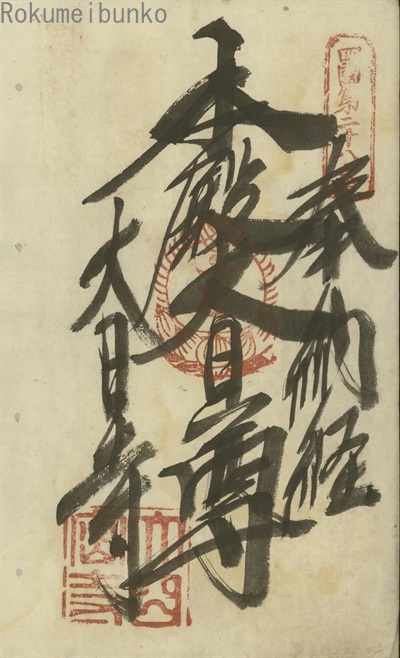 Rokumeibunko
奉納経
本殿大日尊
大日寺